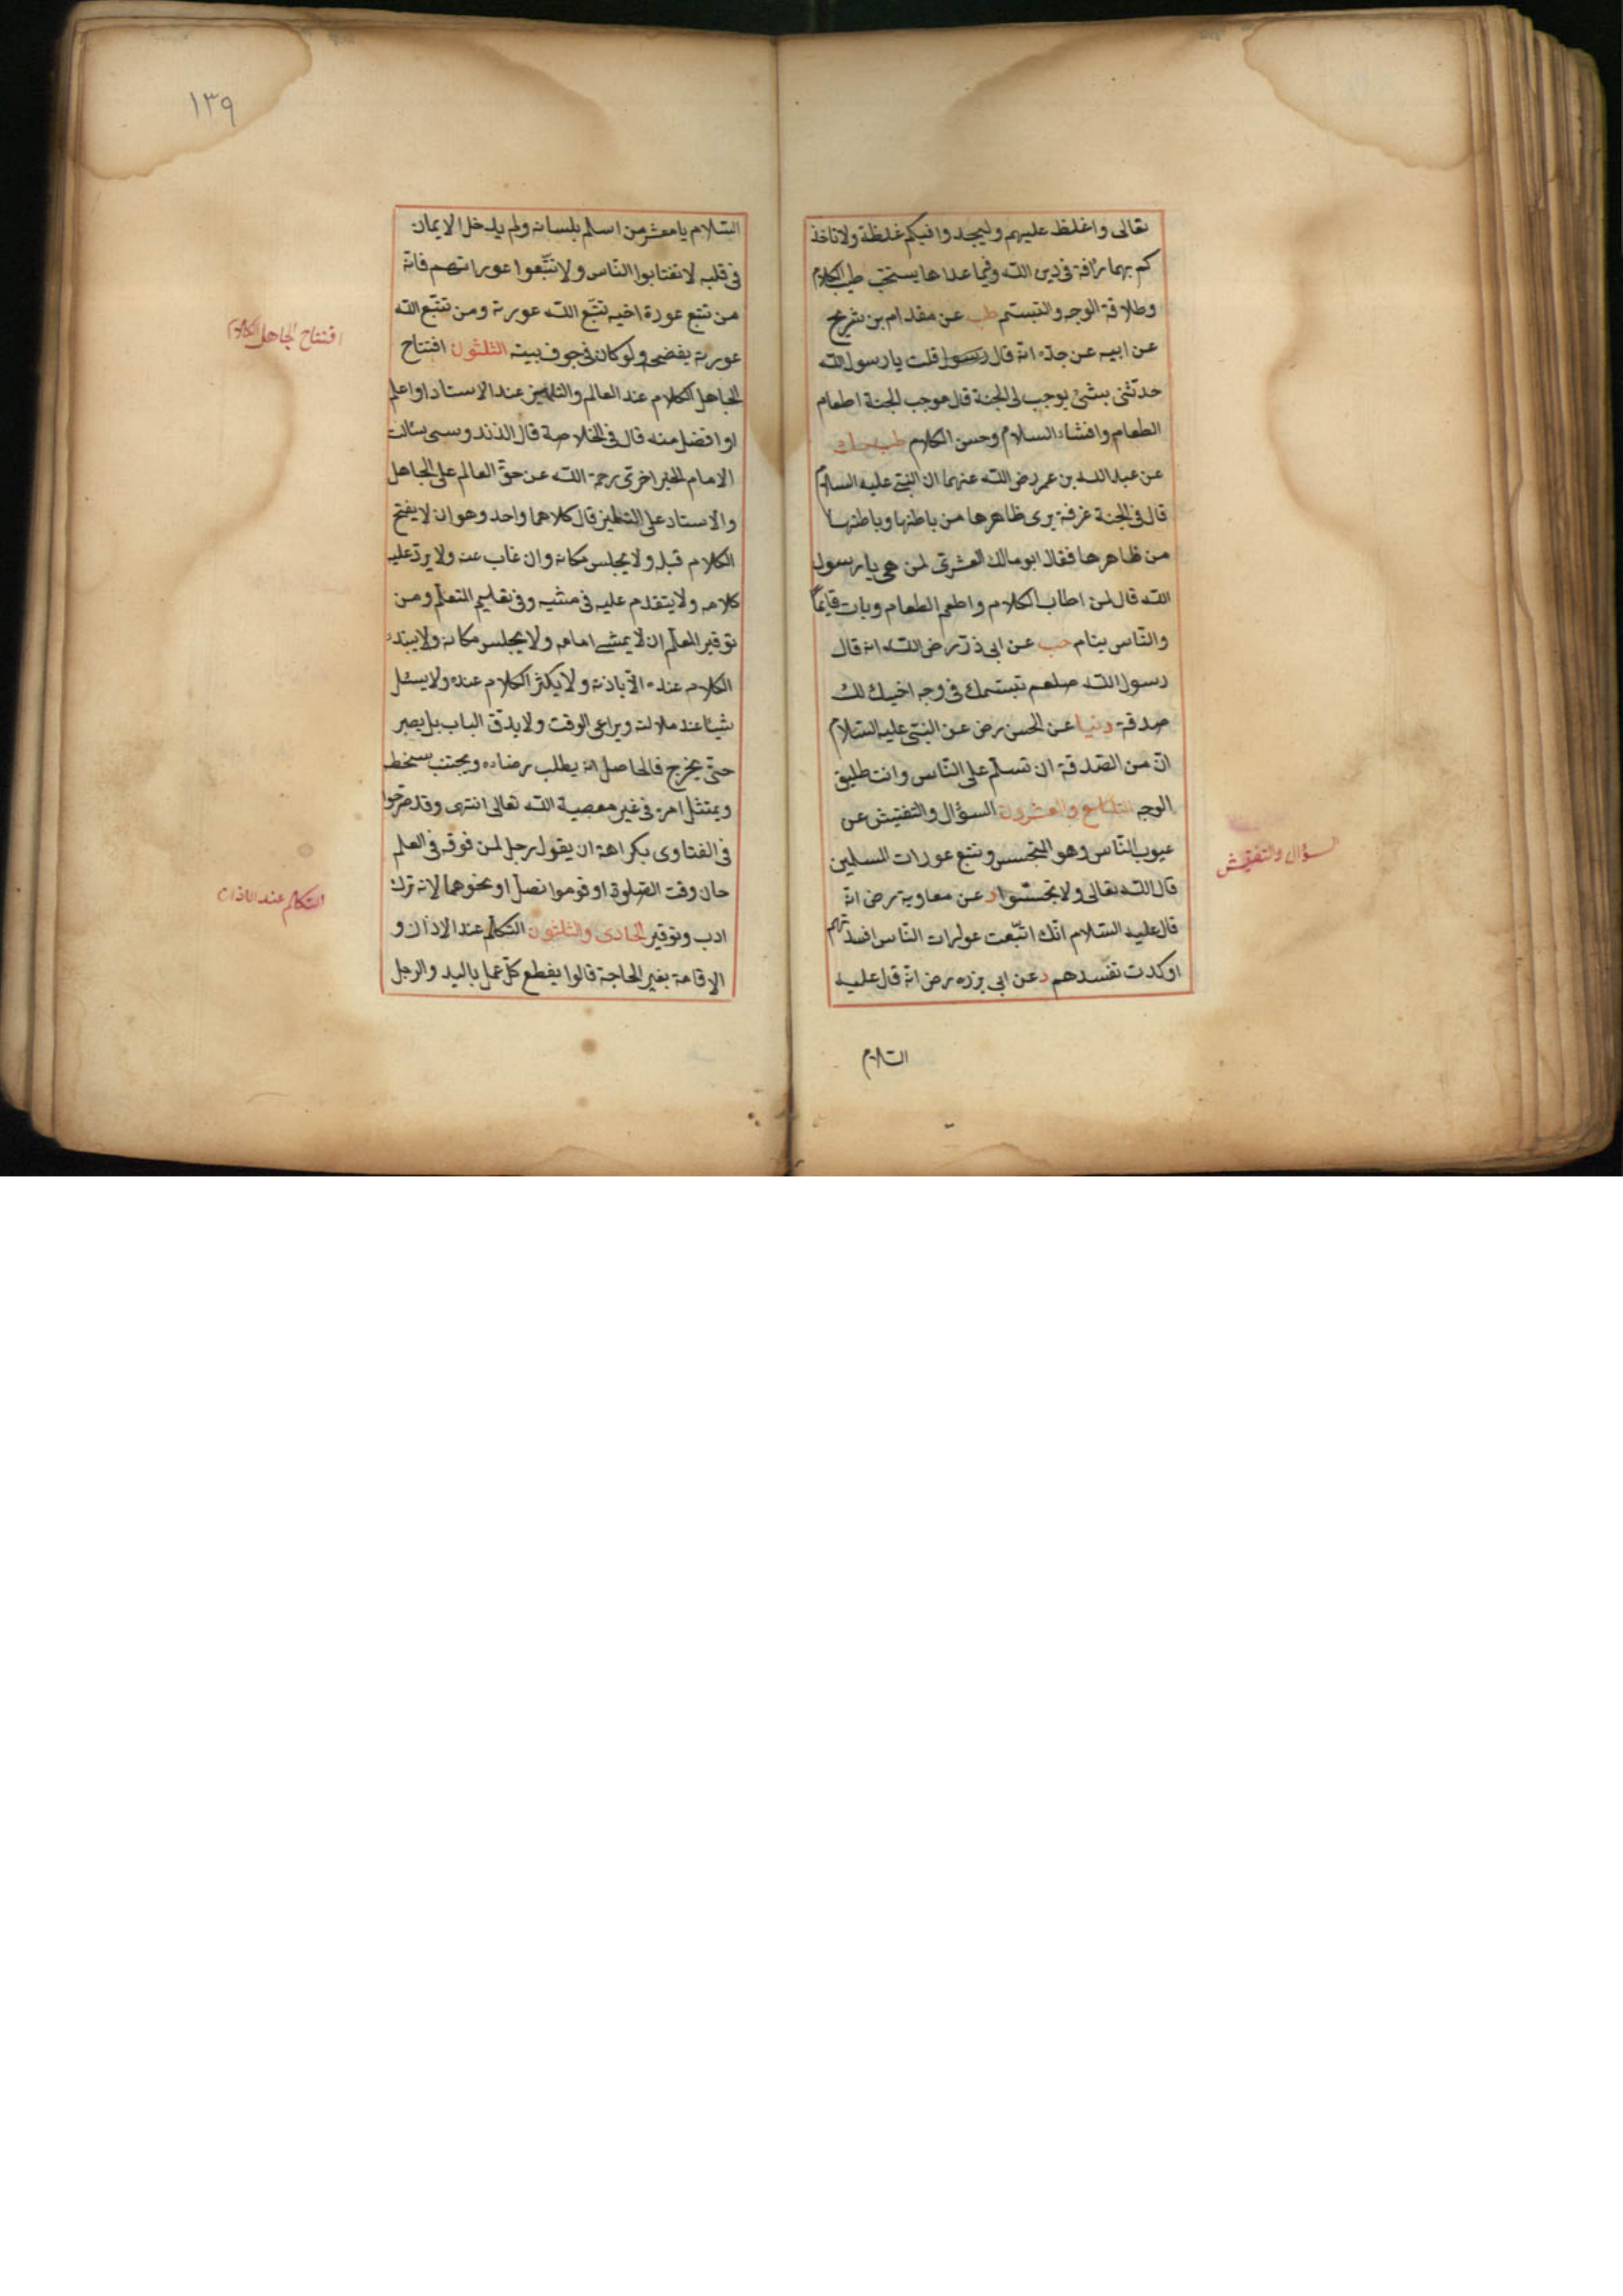 تعالى واغلظ عليهم وليجدوا فيكم غلظة ولا تاخذ
كم بهما رأفة فى دين الله وفيما عداها يستحب طيب الكلام
وطلاقة الوجه والتبسم طب عن مقدام بن شريح
عن ابيه عن جده انه قال رسول قلت يا رسول الله
حدثنى بشئ يوجب لى الجنة قال موجب الجنة اطعام
الطعام وافشاء السلام وحسن الكلام طب حك
عن عبد الله بن عمر رضى الله عنهما ان النبى عليه السلام
قال فى الجنة غرفة يرى ظاهرها من باطنها وباطنها
من ظاهرها فقال ابو مالك العشرى لمن هى يا رسول
الله قال لمن اطاب الكلام واطعم الطعام وبات قايمًا
والناس ينام حب عن ابى ذر رضى الله انه قال
رسول الله صلعم تبسمك فى وجه اخيك لك
صدقة دنيا عن الحسن رض عن النبى عليه السلام
ان من الصدقة ان تسلم على الناس وانت طليق
الوجه التاسع والعشرون السؤال والتفتيش عن
عيوب الناس وهو التجسس وتتبع عورات المسلمين
قال الله تعالى ولا تجسسوا د عن معاوية رض انه
قال عليه السلام انك اتبعت عورات الناس افسدتهم
اوكدت تفسدهم د عن ابى برزه رض انه قال عليه
السلام
السؤال والتفتيش
١٣٩
السلام يا معشر من اسلم بلسانه ولم يدخل الايمان
فى قلبه لا تغتابوا الناس ولا تتبعوا عوراتهم فانه
من تتبع عورة اخيه تتبع الله عورته ومن تتبع الله
عورته يفضحه ولو كان فى جوف بيته الثلثون افتتاح
الجاهل الكلام عند العالم والتلميذ عند الاستاد او اعلم
او افضل منه قال فى الخلاصة قال الذندوسى سئالت
الامام الخيراخزى رحمة الله عن حق العالم على الجاهل
والاستاد على التلميذ قال كلاهما واحد وهو ان لا يفتح
الكلام قبله ولا يجلس مكانه وان غاب عنه ولا يرد عليه
كلامه ولا يتقدم عليه فى مشيه وفى تعليم المتعلم ومن
توقير المعلم ان لا يمشى امامه ولا يجلس مكانه ولا يبتدء
الكلام عنده الا باذنه ولا يكثر الكلام عنده ولا يسئل
شيئا عند ملالته ويراعى الوقت ولا يدق الباب بل يصبر
حتى يخرج فالحاصل انه يطلب رضاه ويجتنب سخطه
ويمتثل امره فى غير معصية الله تعالى انتهى وقد صرحوا
فى الفتاوى بكراهة ان يقول رجل لمن فوقه فى العلم
حان وقت الصلوة او قوموا نصل او نحوهما لانه ترك
ادب وتوقير الحادى والثلثون التكلم عند الاذان و
الاقامة بغير الحاجة قالوا يقطع كل عمل باليد والرجل
افتتاح الجاهل الكلام
التكلم عند الاذان